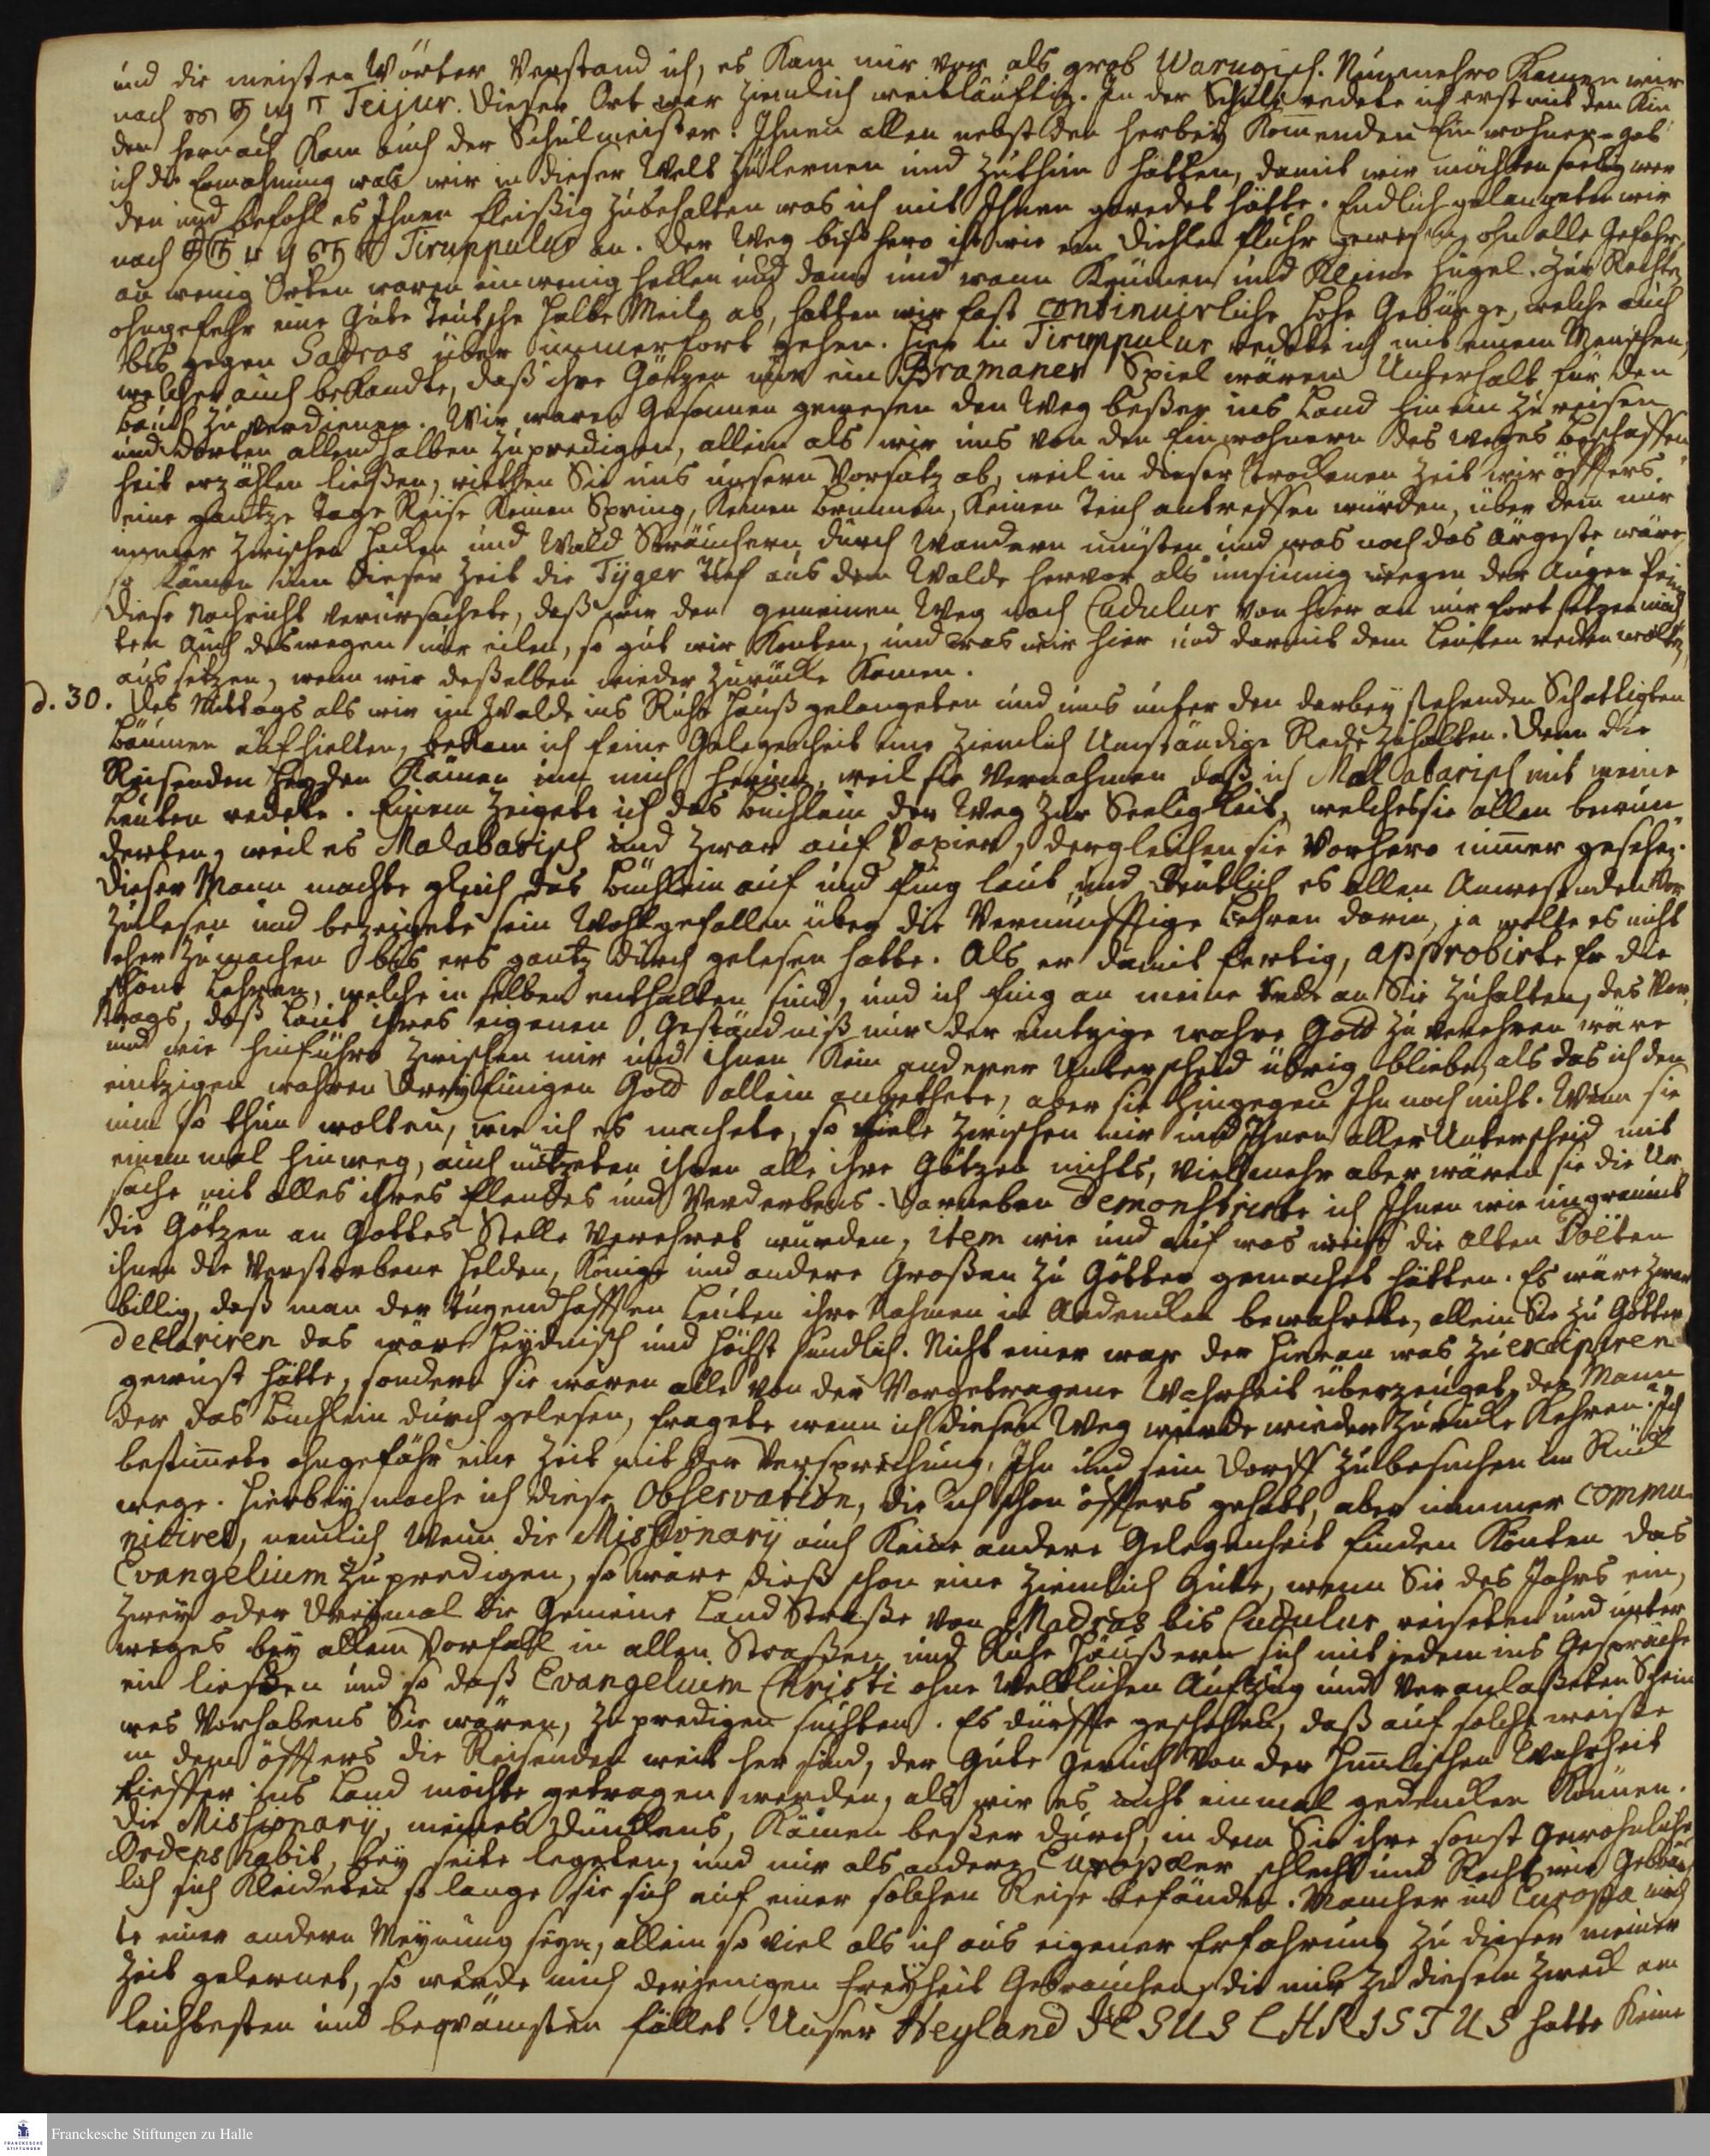 und die meisten Wörter Verstand ich, es kam mir vor als grob Warugisch. Nunmehro kamen wir
nach Teijur. Dieser Ort war ziemlich weitläufftig. In der Schule redete ich erst mit den Kin
dern hernach kam auch der Schulmeister. Ihnen allen nebst den herbey komenden Einwohnern gab
ich die Ermahnung was wir in dieser Welt zulernen und zuthun hätten, damit wir möchten seelig wer
den und befohl es Ihnen fleißig zubehalten was ich mit Ihnen geredet hätte. Endlich gelangeten wir
nach Tiruppulur an. Der Weg bißhero ist wie ein Diehlen fluhr gewesen, ohn alle Gefahr,
an wenig Orten waren ein wenig Hecken und dann und wann Krümen und kleine Hügel. Zur Rechten
ohngefehr eine gute Teutsche halbe Meile ab, hatten wir fast continuirliche hohe Gebürge, welche auch
bis gegen Sadras über immerfort gehen. Hier in Tiruppulur redete ich mit einem Menschen,
welcher auch bekandte, daß ihre Götzen nur ein Bramaner Spiel wären Unterhalt für den
Bauch zu verdienen. Wir waren Gesonnen gewesen den Weg beßer ins Land hin ein zu reisen
und dorten allenthalben zu predigen, allein als wir uns von den Einwohnern des weges Beschaffen
heit erzählen ließen, riethen Sie uns unsern Vorsatz ab, weil in dieser trockenen Zeit wir öffters
eine gantze Tage Reise keinen Spring, keinen Brunnen, keinen Teich antreffen würden, über dem wir
immer zwischen Hecken und Wald Sträuchern durch wandern müsten und was noch das ärgeste wäre
so kämen um dieser Zeit die Tyger tief aus dem Walde hervor als unsinnig wegen der Augen Pein
Diese Nachricht verursachete, daß wir den gemeinen Weg nach Cudulur von hier an nur fort setzen möch
ten auch deswegen nur eilen, so gut wir konten, und was wir hier und dar mit dem Leuten reden wolten
aus setzen, wenn wir deßelben wieder zurücke kamen.
d. 30. Des Mittags als wir im Walde ins Ruhe Hauß gelangeten und uns unter den darbey stehenden Schattigten
Bäumen aufhielten, bekam ich feine Gelegenheit eine ziemlich Umständige Rede zuhalten. Denn die
Reisenden Heyden kämen um mich herum, weil sie vernahmen daß ich Malabarisch mit meine
Leuten redete. Einem zeigete ich das Büchlein der Weg zur Seeligkeit, welches sie allen bewun
derten, weil es Malabarisch und zwar auf Papier, dergleichen sie Vorhero nimer gesehen.
Dieser Mann machte gleich das Büchlein auf und fing laut und deutlich es allen Anwesenden Vor
zulesen und bezeigete sein Wohlgefallen über die Vernünfftige Lehren darin, ja wolte es nicht
eher zumachen bis ers gantz durch gelesen hatte. Als er damit fertig, approbirte Er die
schöne Lehren, welche in selben enthalten sind, und ich fing an meine Rede an Sie zuhalten, des Vor
trags, daß laut ihres eigenen Geständniß nur der eintzige wahre Gott zu verehren wäre
und wie hinführo zwischen mir und ihnen kein anderer Unterscheid übrig bliebe, als das ich den
eintzigen wahren DreyEinigen Gott allein anbethete, aber sie hingegen Ihn noch nicht. Wenn sie
nun so thun wolten, wie ich es machete, so fiele zwischen mir und Ihnen aller Unterscheid mit
einem mal hinweg, auch nützeten ihnen alle ihre Götzen nichts, vielmehr aber wären sie die Ur
sache mit alles ihres Elendes und Verderbens. Darneben demonstrirte ich Ihnen wie ungereimt
die Götzen an Gottes Stelle verehret würden, item wie und auf was weise die alten Poëten
ihnen die Verstorbene Helden, Könige und andere Großen zu Götter gemachet hätten. Es wäre zwar
billig, daß man der tugendhafften Leuten ihre Nahmen in Andencken bewahrete, allein Sie zu Götter
declariren das wäre heydnisch und höchst sündlich. Nicht einer war der hieran was zu excipiren
gewust hätte, sondern sie waren alle von der Vorgetragene Wahrheit überzeuget, der Mann
der das Büchlein durch gelesen, fragete wenn ich diesen Weg würde wieder zurücke kehren? Ich
bestimete ohngefähr eine Zeit mit der Versprechung, Ihn und sein Dorff zu besuchen im Rück
wege. Hierbey mache ich diese Observation, die ich schon öffters gehabt, aber nimmer commu
niciret, nemlich Wenn die Missionarij auch keine andere Gelegenheit finden könten das
Evangelium zu predigen, so wäre dieß schon eine ziemlich gute, wenn Sie des Jahrs ein,
zwey oder dreymal die Gemeine Land Straße von Madras bis Cudulur reiseten und unter
weges bey allem Vorfall in allen Straßen und Ruhe Häußern sich mit jedem ins Gespräche
ein ließen und so daß Evangelium Christi ohne Weltlichen Aufzug und Veranlaßeten Schein
wes Vorhabens Sie wären, zu predigen suchten. Es dürffte geschehen, daß auf solche weise
in dem öffters die Reisenden weit her sind, der gute Geruch von der Himlischen Wahrheit
tieffer ins Land möchte getragen werden, als wir es nicht einmal gedencken können.
Die Missionarij, meines dünckens, kämen beßer durch, in dem Sie ihre sonst gewöhnliche
Ordens habit, bey seite legeten, und nur als andere Europæer schlecht und Recht wie Gebräuch
lich sich kleideten so lange sie sich auf einer solchen Reise befänden. Mancher in Europa möch
te einer andern Meynung seyn, allein so viel als ich aus eigener Erfahrung zu dieser meiner
Zeit gelernet, so würde mich derjenigen Freyheit Gebrauchen, die mir zu diesem Zweck am
leichtesten und beqvämsten fället. Unser Heyland JESUS CHRISTUS hatte keine
Franckesche Stiftungen zu Halle